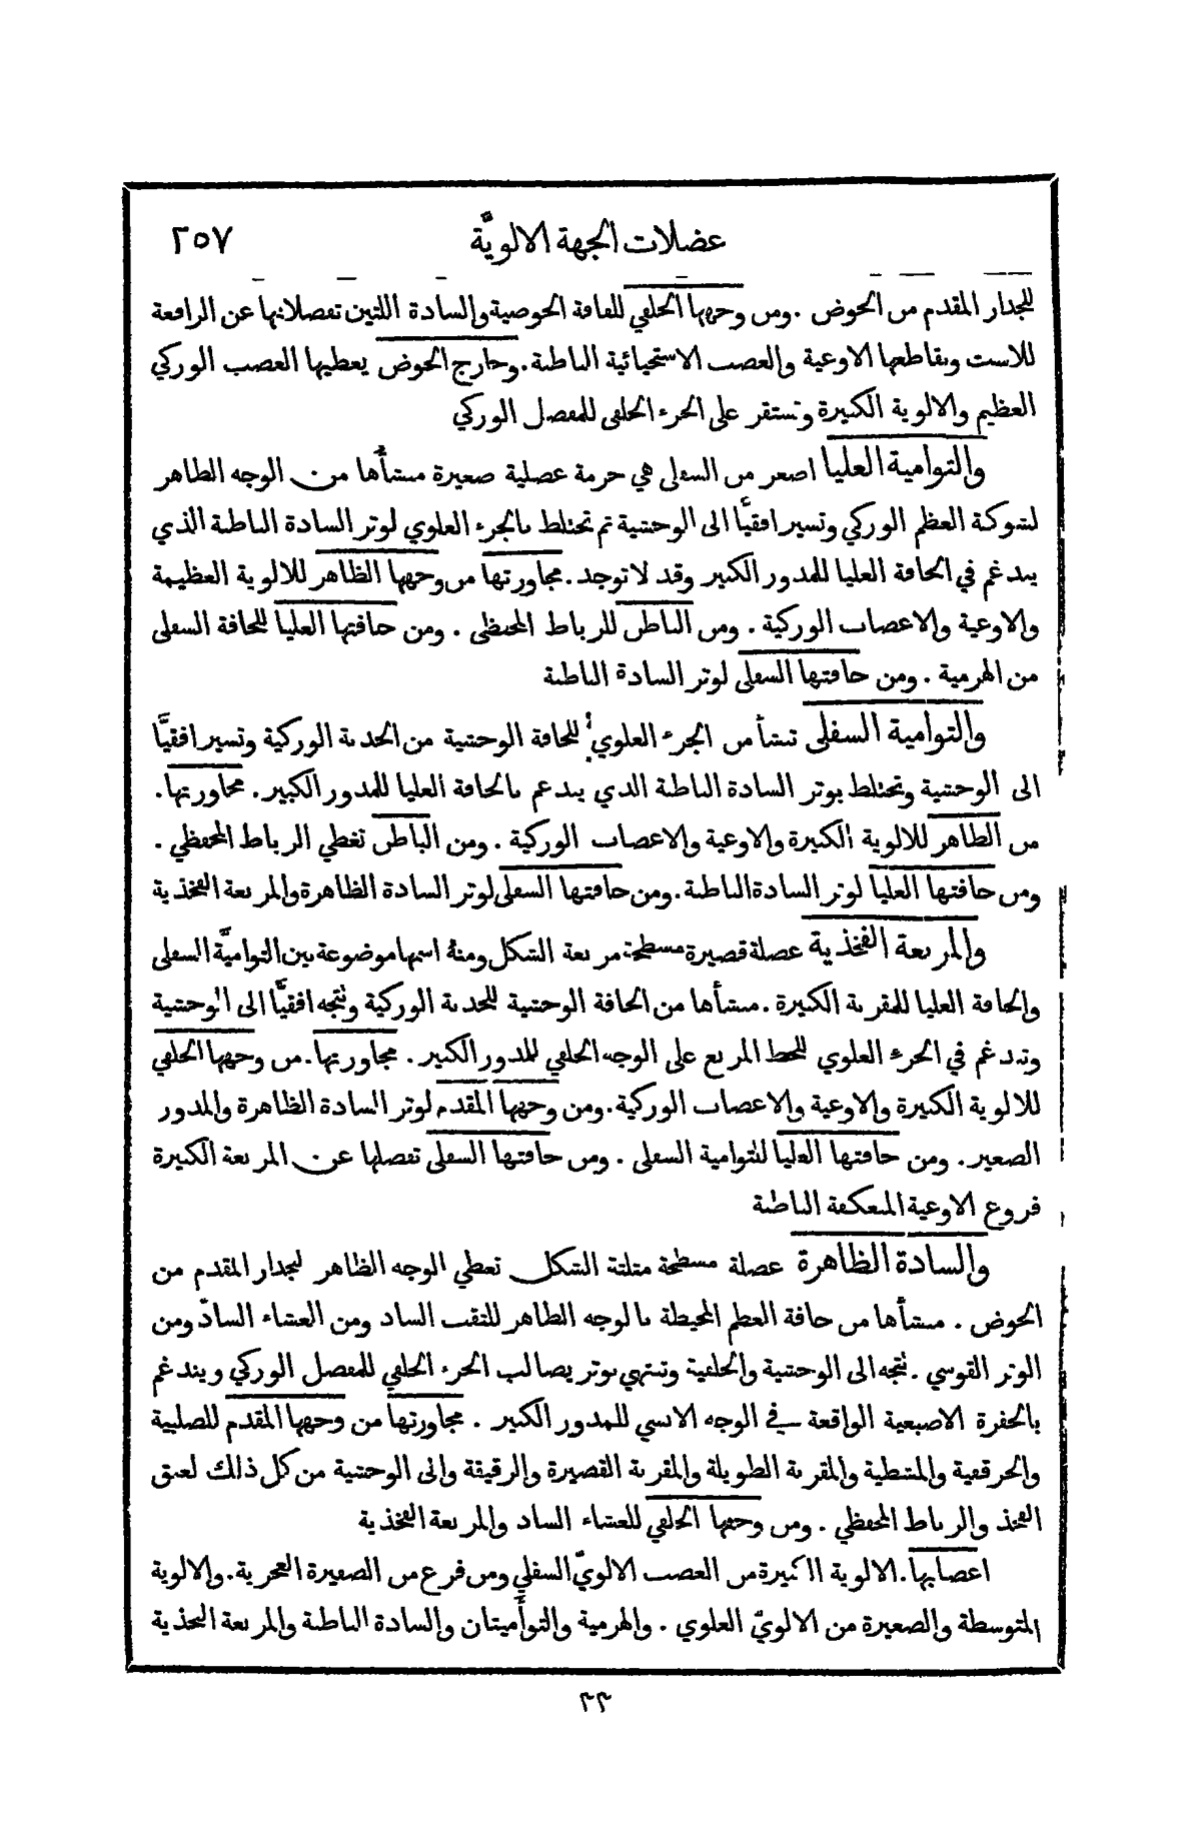 عضلات الجهة الالويَّة ٢٥٧
للجدار المقدم من الحوض . ومن وجهها الخلفي للفافة الحوضية والسادة اللتين تفصلانها عن الرافعة
للاست وتقاطعها الاوعية والعصب الاستحيائية الباطنة . وخارج الحوض يغطيها العصب الوركي
العظيم والالوية الكبيرة وتستقر على الجزء الخلفي للمفصل الوركي
والتوامية العليا اصغر من السفلى هي حزمة عضلية صغيرة منشأُها من الوجه الظاهر
لشوكة العظم الوركي وتسير افقيًّا الى الوحشية ثم تختلط بالجزء العلوي لوتر السادة الباطنة الذي
يندغم في الحافة العليا للمدور الكبير وقد لا توجد . مجاورتها من وجهها الظاهر للالوية العظيمة
والاوعية والاعصاب الوركية . ومن الباطن للرباط المحفظي . ومن حافتها العليا للحافة السفلى
من الهرمية . ومن حافتها السفلى لوتر السادة الباطنة
والتوامية السفلى تنشأ من الجزء العلوي للحافة الوحشية من الحدبة الوركية وتسير افقيًّا
الى الوحشية وتختلط بوتر السادة الباطنة الذي يندغم بالحافة العليا للمدور الكبير . مجاورتها .
من الظاهر للالوية الكبيرة والاوعية والاعصاب الوركية . ومن الباطن تغطي الرباط المحفظي .
ومن حافتها العليا لوتر السادة الباطنة . ومن حافتها السفلى لوتر السادة الظاهرة والمربعة الفخذية
والمربعة الفخذية عضلة قصيرة مسطحة مربعة الشكل ومنهُ اسمها موضوعة بين التواميَّة السفلى
والحافة العليا للمقربة الكبيرة . منشأها من الحافة الوحشية للحدبة الوركية وتتجه افقيًّا الى الوحشية
وتندغم في الجزء العلوي للخط المربع على الوجه الخلفي للمدور الكبير . مجاورتها . من وجهها الخلفي
للالوية الكبيرة والاوعية والاعصاب الوركية . ومن وجهها المقدم لوتر السادة الظاهرة والمدور
الصغير . ومن حافتها العليا للتوامية السفلى . ومن حافتها السفلى تفصلها عن المربعة الكبيرة
فروع الاوعية المنعكفة الباطنة
والسادة الظاهرة عضلة مسطحة مثلثة الشكل تغطي الوجه الظاهر لجدار المقدم من
الحوض . منشأها من حافة العظم المحيطة بالوجه الظاهر للثقب الساد ومن الغشاء السادّ ومن
الوتر القوسي . تتجه الى الوحشية والخلفية وتنتهي بوتر يصالب الجزء الخلفي للمفصل الوركي ويندغم
بالحفرة الاصبعية الواقعة في الوجه الانسي للمدور الكبير . مجاورتها من وجهها المقدم للصلبية
والحرقفية والمشطية والمقربة الطويلة والمقربة القصيرة والرقيقة والى الوحشية من كل ذلك لعنق
الفخذ والرباط المحفظي . ومن وجهها الخلفي للغشاء الساد والمربعة الفخذية
اعصابها . الالوية الكبيرة من العصب الالويّ السفلي ومن فرع من الضفيرة العجزية . والالوية
المتوسطة والصغيرة من الالويّ العلوي . والهرمية والتوأميتان والسادة الباطنة والمربعة الفخذية
٣٣